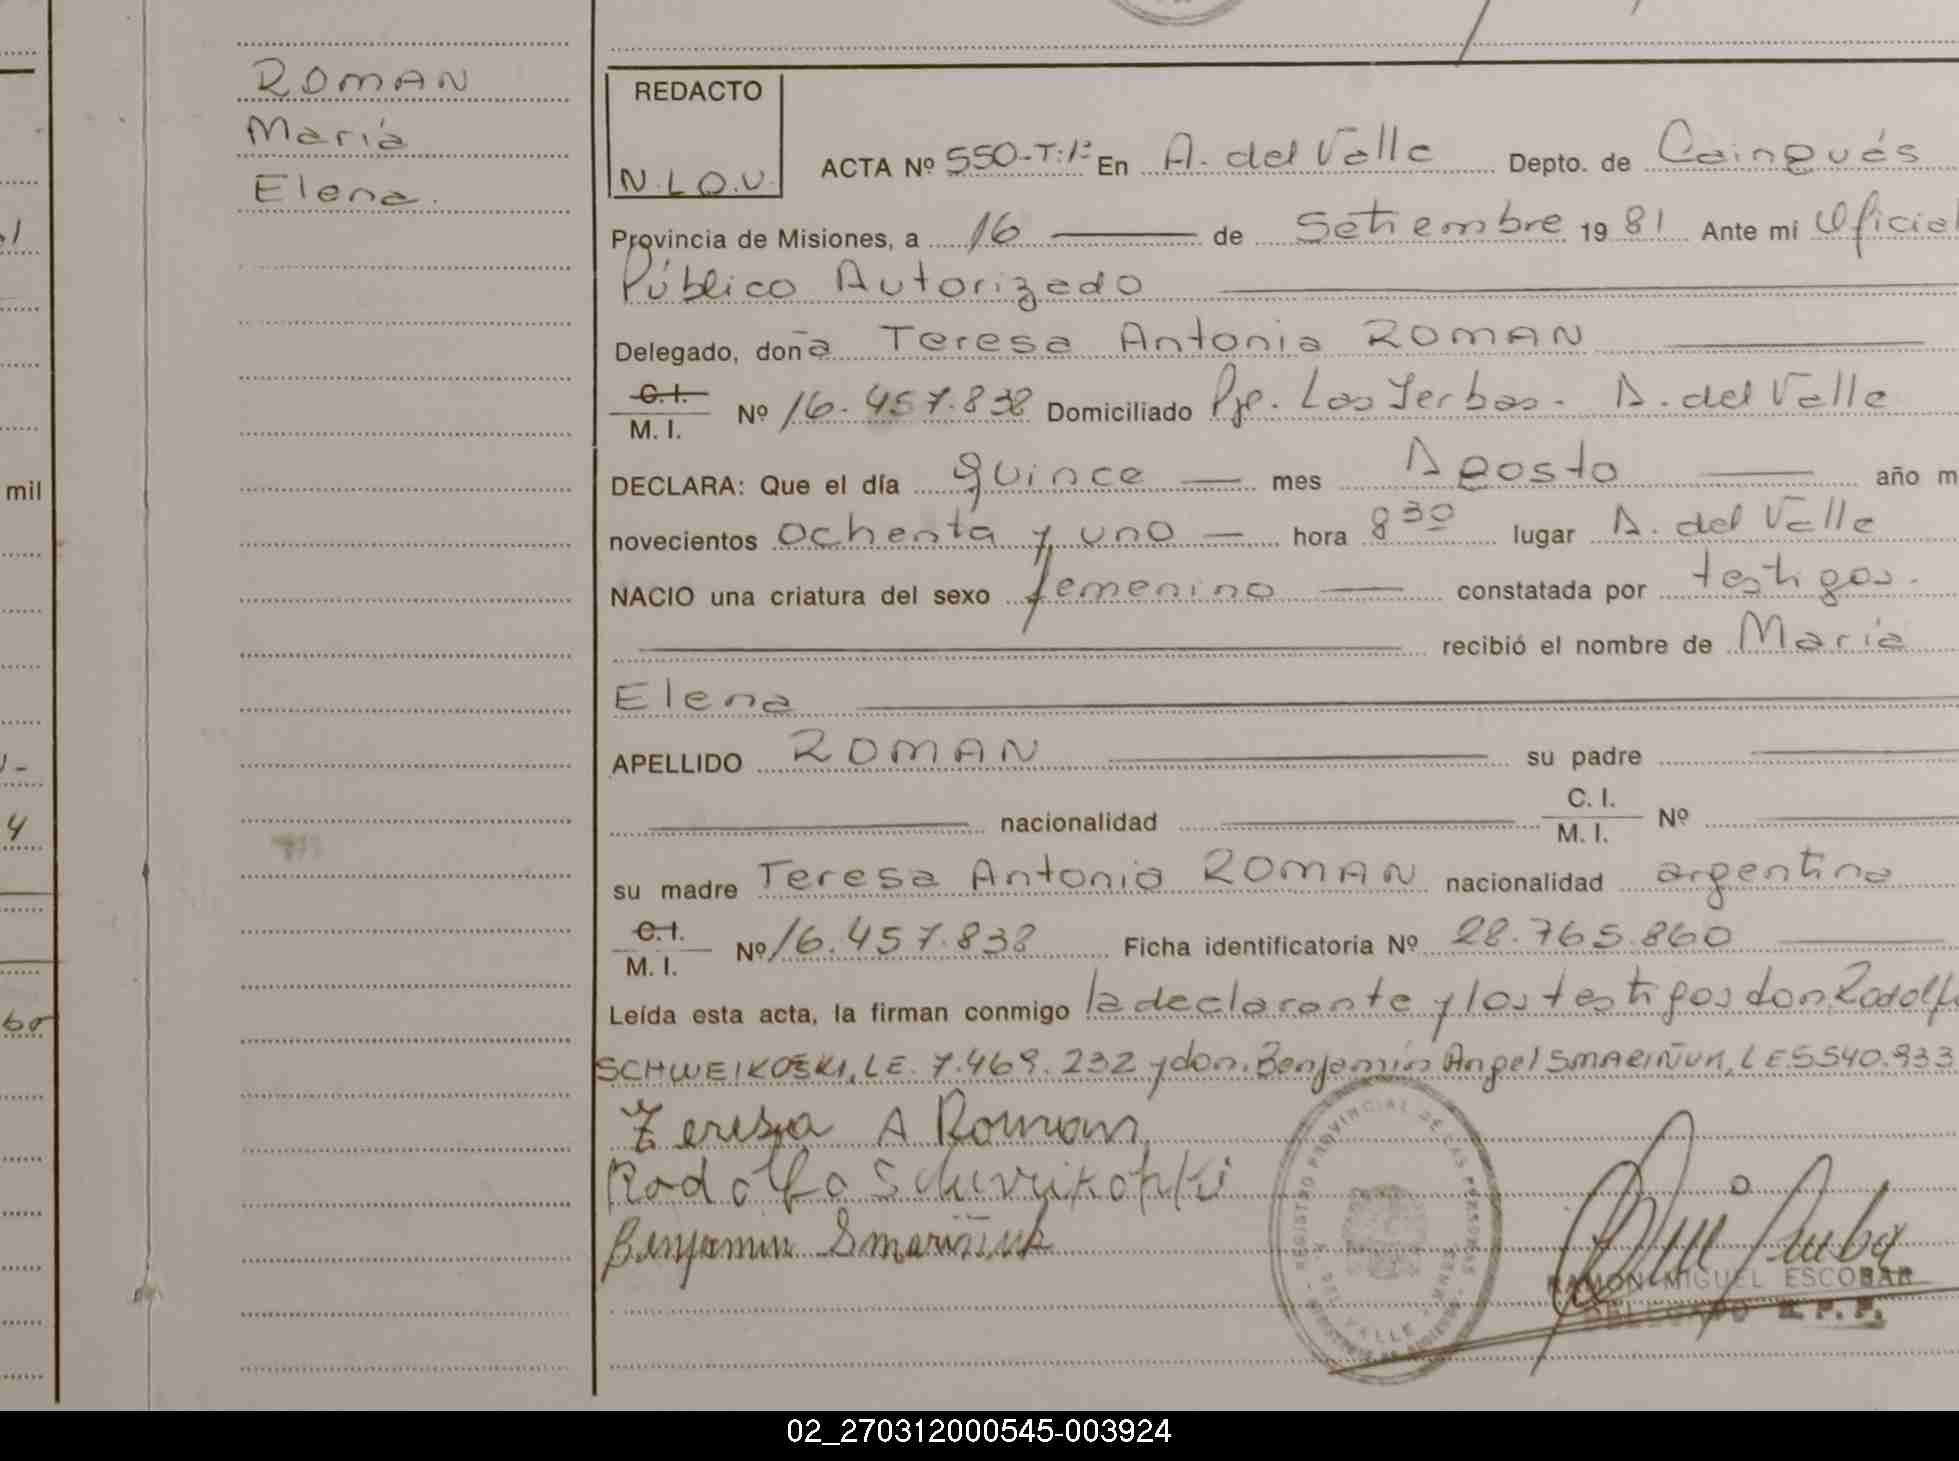 ROMAN
María
Elena.
mil
REDACTO
N.L.O.V.
ACTA Nº 550-T:1º En A. del Valle Depto. de Cainguás
Provincia de Misiones, a 16 de Setiembre 19 81 Ante mi Oficial
Público Autorizado
Delegado, doña Teresa Antonia ROMAN
C.I. M. I. Nº 16.457.838 Domiciliado Pje. Las Yerbas - A. del Valle
DECLARA: Que el día quince mes Agosto año m
novecientos ochenta y uno hora 8 30 lugar A. del Valle
NACIO una criatura del sexo femenino constatada por testigos.
recibió el nombre de María
Elena
APELLIDO ROMAN su padre
nacionalidad C. I. M. I. Nº
su madre Teresa Antonia ROMAN nacionalidad argentina
C.I. M. I. Nº 16.457.838 Ficha identificatoria Nº 28.765.860
Leída esta acta, la firman conmigo la declarante y los testigos don Rodolfo
SCHWEIKOSKI, LE. 7.469.232 y don. Benjamín Angel SMARIÑUK, LE 5540.933
Teresa A Roman
Rodolfo Schveikofki
Benjamin Smariñuk
REGISTRO PROVINCIAL DE LAS PERSONAS
DEL VALLE - MNES
RAMON MIGUEL ESCOBAR
DELEGADO R. P. P.
02_270312000545-003924